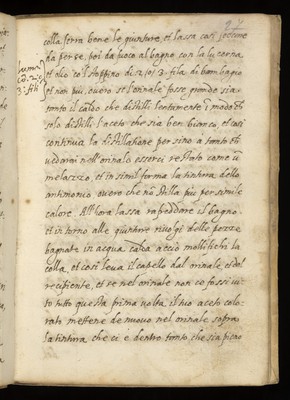 colla serra bene le gionture, et lassa così seccare
da per se. poi dà fuoco al bagno con la lucerna
et olio co'l stoppino di 2, o 3. fila di bombagio
et non più, overo se l'orinale fosse grande sia
tanto il caldo che distilli lentamente i modo ch'
solo distilli l'aceto che sia ben bianco, et così
continua la distillatione per sino a tanto ch'
vedarai nell'orinale esserci restato come ũ
melazzo, et in simil forma la tintura dello
antimonio, overo che nõ stilla più per simile
calore. All'hora lassa rafreddare il bagno.
et intorno alle gionture rivolgi delle pezze
bagnate in acqua calda acciò mollifichi la
colla, et così leva il capello dal orinale, et dal
recipiente, et se nel orinale non ce fossi in
tutto questa prima volta il tuo aceto colo
rato mettene de nuovo nel orinale sopra
la tintura che ci è dentro tanto, che sia pieno
lucerna
cõ. 2. o
3: fili